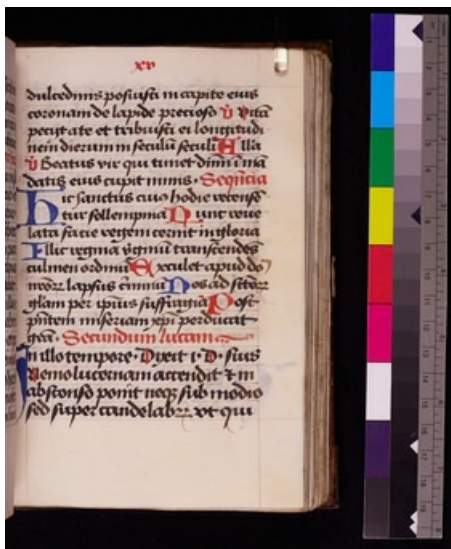 xv
dulcedinis posuisti in capite eius
coronam de lapide precioso v̄ vitā
peciit a te et tribuisti ei longitudi
nem dierum in seculū seculi Alla
v̄ Beatus vir qui timet dnm in mā
datis eius cupit nimis · Sequēcia
Hic sanctus cuiꝰ hodie recensē
tur sollempnia Nunc reue
lata facie regem cernit in gloria
Illic regina v̓ginū transcēdēs
culmen ordinū Excuset apud
lapsus Nos ad
glam per ipius suffragia Post
pñtem miseriam xpi perducat
· Secundum lucam
In illo tempore · Dixit i · d · suis
Nemo lucernam accendit ⁊ in
abscondso ponit neqꝫ sub modio
sed super candelabrꝝ vt qui